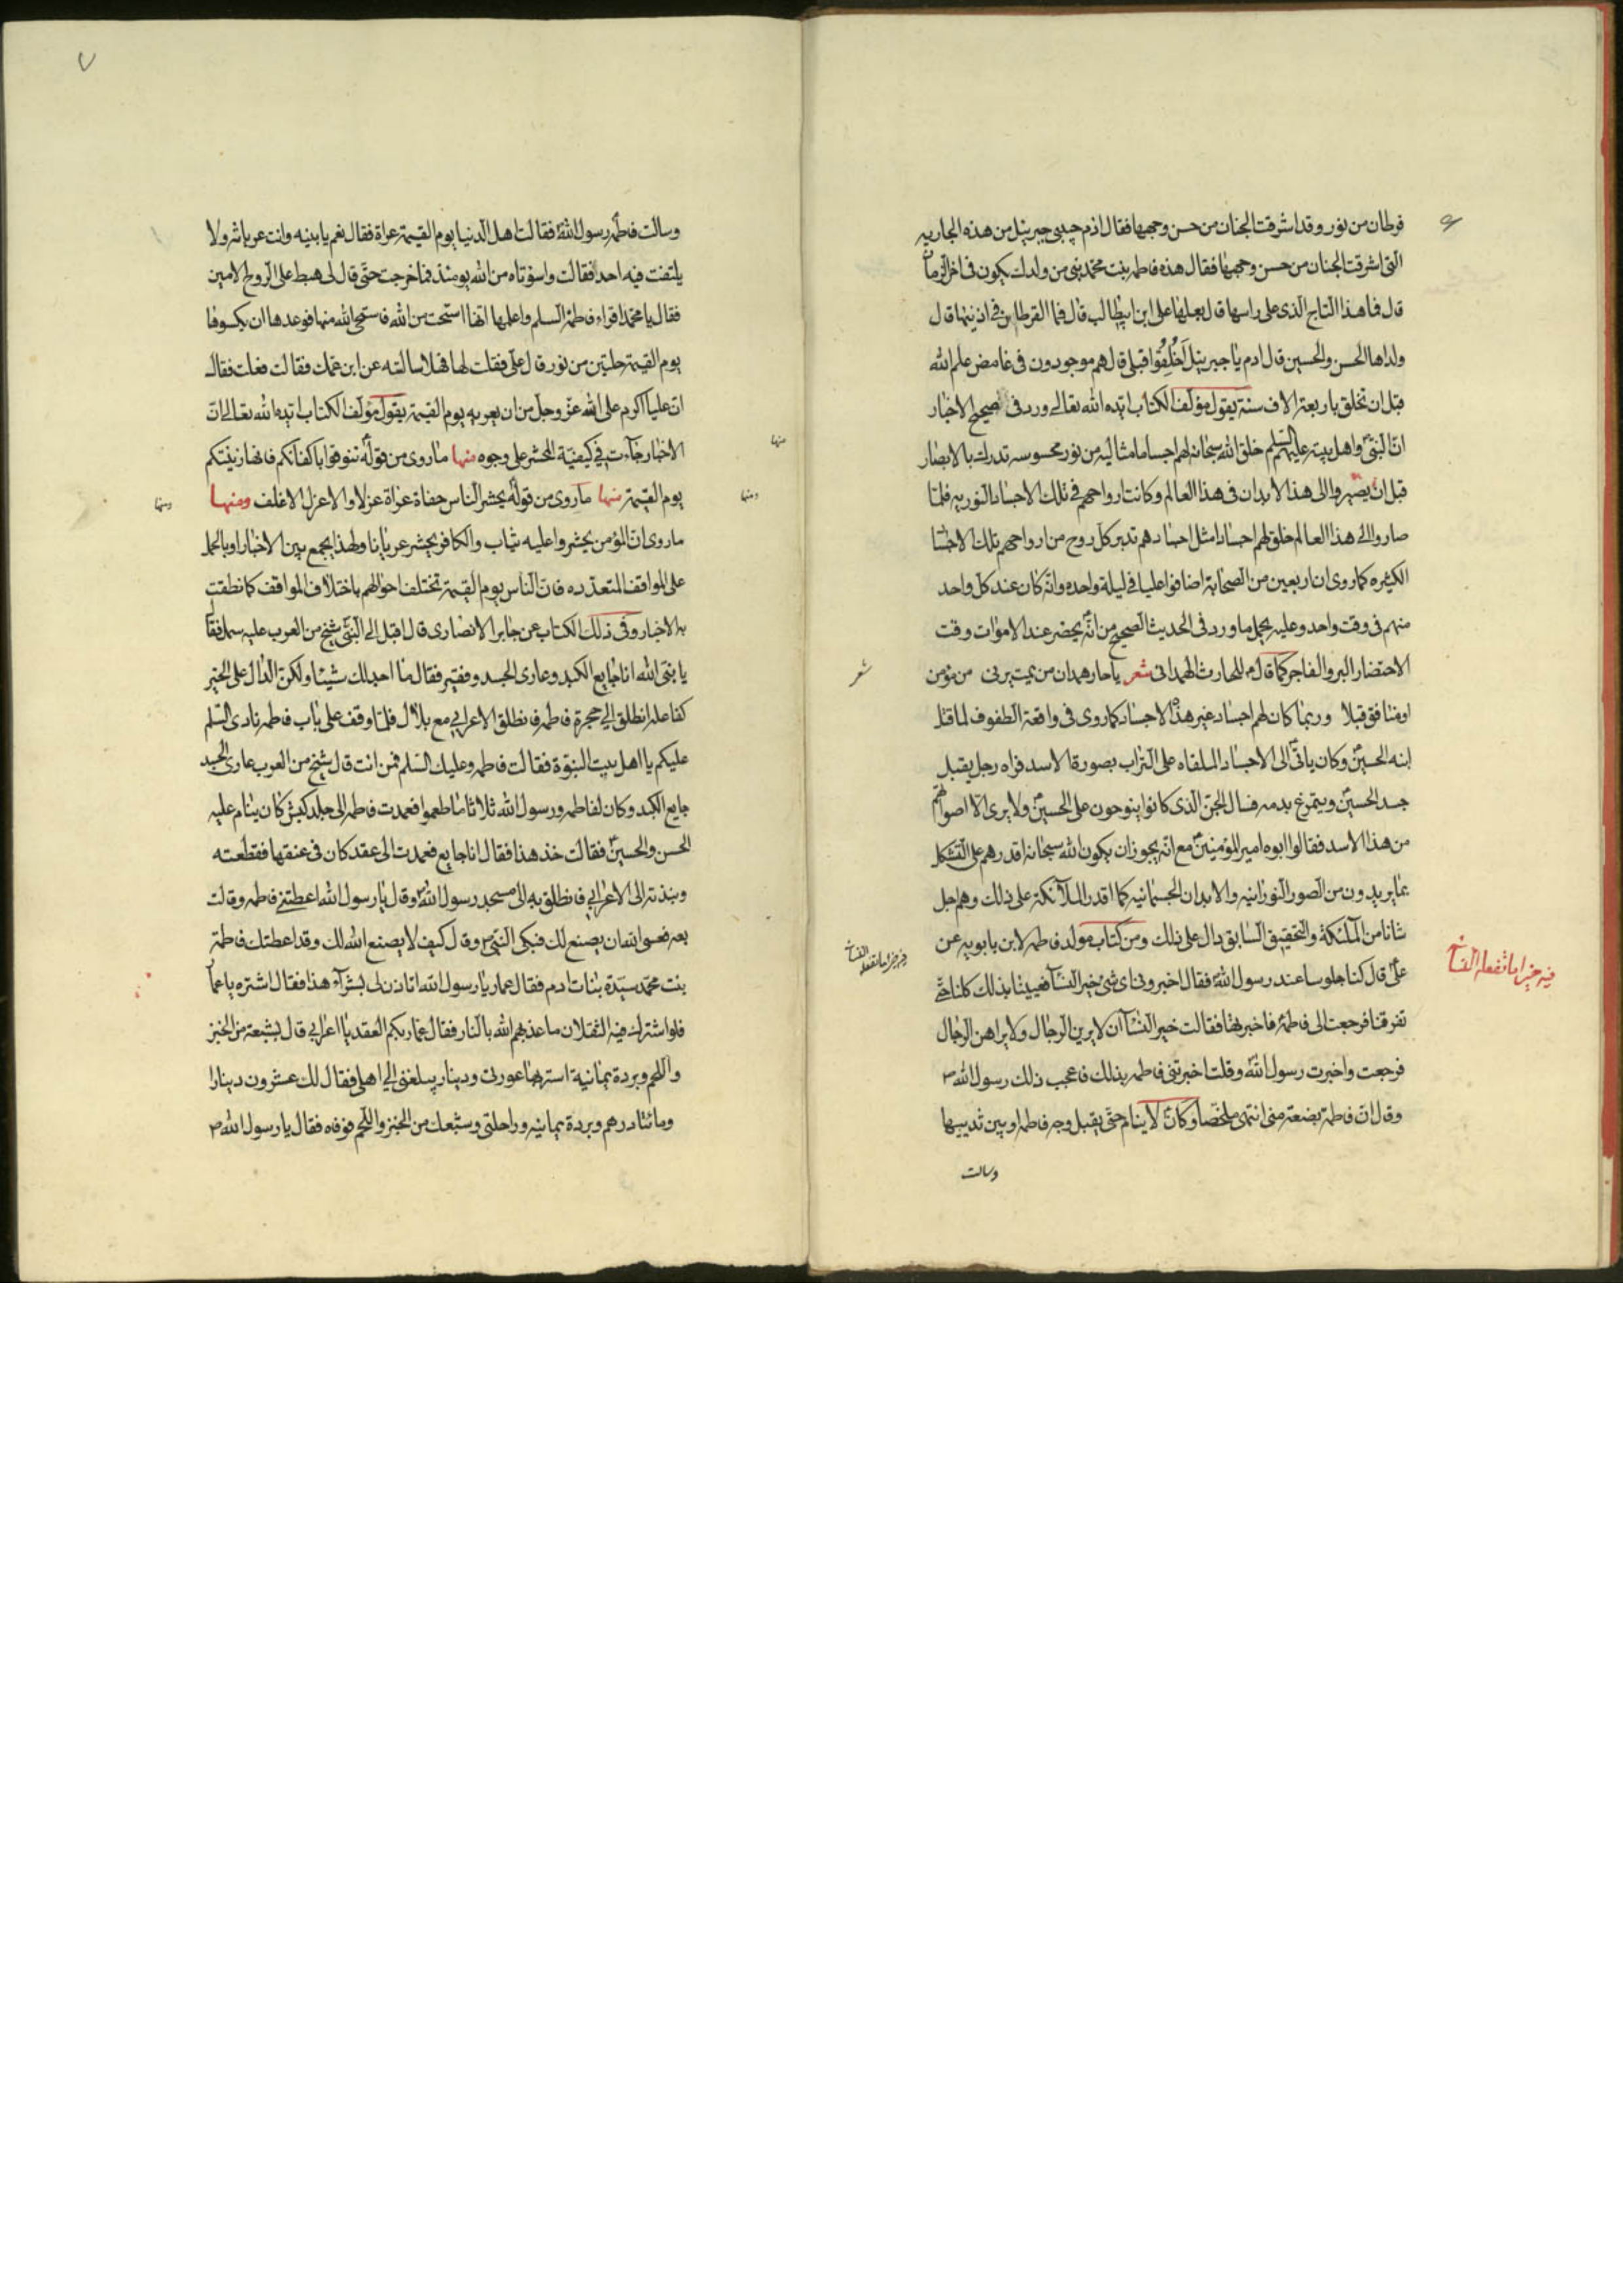 قرطان من نور وقد اشرقت الجنان من حسن وجهها فقال ادم حبيبي جبرئيل من هذه الجاريه
التي اشرقت الجنان من حسن وجهها فقال هذه فاطمه بنت محمد نبي من ولدك يكون في اخر الزمان
قال فما هذا التاج الذي على راسها قال بعلها علي ابن ابيطالب قال فما القرطان في اذنيها قال
ولداها الحسن والحسين قال ادم يا جبرئيل أخُلِقُوا قبلي قال هم موجودون في غامض علم الله
قبل ان تخلق باربعة الاف سنة يقول مؤلف الكتاب ايده الله تعالى ورد في صحيح الاخبار
ان النبي واهل بيته عليهم السلم خلق الله سبحانه لهم اجساما مثاليه من نور محسوسه تدرك بالابصار
قبل ان يصيروا الى هذا الابدان في هذا العالم وكانت ارواحهم في تلك الاجساد النوريه فلما
صاروا الى هذا العالم خلق لهم اجسادا مثل اجسادهم تدبر كل روح من ارواحهم تلك الاجساد
الكثيره كما روى ان اربعين من الصحابة اضافوا عليا في ليلة واحده وانه كان عند كل واحد
منهم في وقت واحد وعليه يحمل ما ورد في الحديث الصحيح من انه يحضر عند الاموات وقت
الاحتضار البر والفاجر كما قال للحارث الهمداني شعر يا حار همدان من يمت يرني من مؤمن
او منافق قبلا وربما كان لهم اجساد غير هذه الاجساد كما روى في واقعة الطفوف لما قتل
ابنه الحسين وكان ياتي الى الاجساد الملقاه على التراب بصورة الاسد فراه رجل يقبل
جسد الحسين ويتمرغ بدمه فسال الجن الذي كانوا ينوحون على الحسين ولا يرى الا اصواتهم
من هذا الاسد فقالوا ابوه امير المؤمنين مع انه يجوز ان يكون الله سبحانه اقدرهم على التشكل
بما يريدون من الصور النورانيه والابدان الجسمانيه كما اقدر الملآئكة على ذلك وهم اجل
شانا من الملئكة والتحقيق السابق دال على ذلك ومن كتاب مولد فاطمه لابن بابويه عن
علي قال كنا جلوسا عند رسول الله فقال اخبروني اي شئ خير النسآ فعيينا بذلك كلنا حتى
تفرقنا فرجعت الى فاطمة فاخبرتها فقالت خير النسآ ان لا يرين الرجال ولا يراهن الرجال
فرجعت واخبرت رسول الله وقلت اخبرتني فاطمه بذلك فاعجب ذلك رسول الله ص
وقال ان فاطمة بضعة مني انتهى ملخصا وكان لا ينام حتى يقبل وجه فاطمه او بين ثدييها
وسالت
شعر
٧
وسالت فاطمه رسول الله فقالت اهل الدنيا يوم القيمة عراة فقال نعم يا بنيه وانت عريانه ولا
يلتفت فيه احد فقالت واسوتاه من الله يومئذ فما خرجت حتى قال لي هبط علي الروح الامين
فقال يا محمد اقراء فاطمة السلم واعلمها انها استحت من الله فاستحي الله منها فوعدها ان يكسوها
يوم القيمة حلتين من نور قال علي فقلت لها فهلا سالته عن ابن عمك فقالت فعلت فقال
ان عليا اكرم على الله عز وجل من ان يعريه يوم القيمة يقول مؤلف الكتاب ايده الله تعالى ان
الاخبار جآءت في كيفية الحشر على وجوه منها ما روى من قوله تنوقوا باكفانكم فانها زينتكم
يوم القيمة منها ما روى من قوله يحشر الناس حفاة عراة عزلا والاعزل الاغلف ومنها
ما روى ان المؤمن يحشر وعليه ثياب والكافر يحشر عريانا ولهذا يجمع بين الاخبار اوبالحمل
على المواقف المتعدده فان الناس يوم القيمة تختلف احوالهم باختلاف المواقف كما نطقت
به الاخبار وفي ذلك الكتاب عن جابر الانصاري قال اقبل الى النبي شيخ من العرب عليه سمل فقال
يا نبي الله انا جايع الكبد وعاري الجسد وفقير فقال ما اجد لك شيئا ولكن الدال على الخير
كفاعله انطلق الى حجرة فاطمه فانطلق الاعرابي مع بلال فلما وقف على باب فاطمه نادى السلم
عليكم يا اهل بيت النبوة فقالت فاطمه وعليك السلم فمن انت قال شيخ من العرب عاري الجسد
جايع الكبد وكان لفاطمه ورسول الله ثلاثا ما طعموا فعمدت فاطمه الى جلد كبش كان ينام عليه
الحسن والحسين فقالت خذ هذا فقال انا جايع فعمدت الى عقد كان في عنقها فقطعته
ونبذته الى الاعرابي فانطلق به الى مسجد رسول الله وقال يا رسول الله اعطتني فاطمه وقالت
بعه فعسى الله ان يصنع لك فبكى النبي ص وقال كيف لا يصنع الله لك وقد اعطتك فاطمة
بنت محمد سيدة بنات ادم فقال عمار يا رسول الله اتاذن لي بشرآء هذا فقال اشتره يا عمار
فلو اشترك فيه الثقلان ما عذبهم الله بالنار فقال عمار بكم العقد يا اعرابي قال بشبعة من الخبز
واللحم وبردة يمانية استر بها عورتي ودينار يبلغني الى اهلي فقال لك عشرون دينارا
ومائتا درهم وبردة يمانيه وراحلتي وشبعك من الخبز واللحم فوفاه فقال يا رسول الله ص
منها
ومنها
ومنها